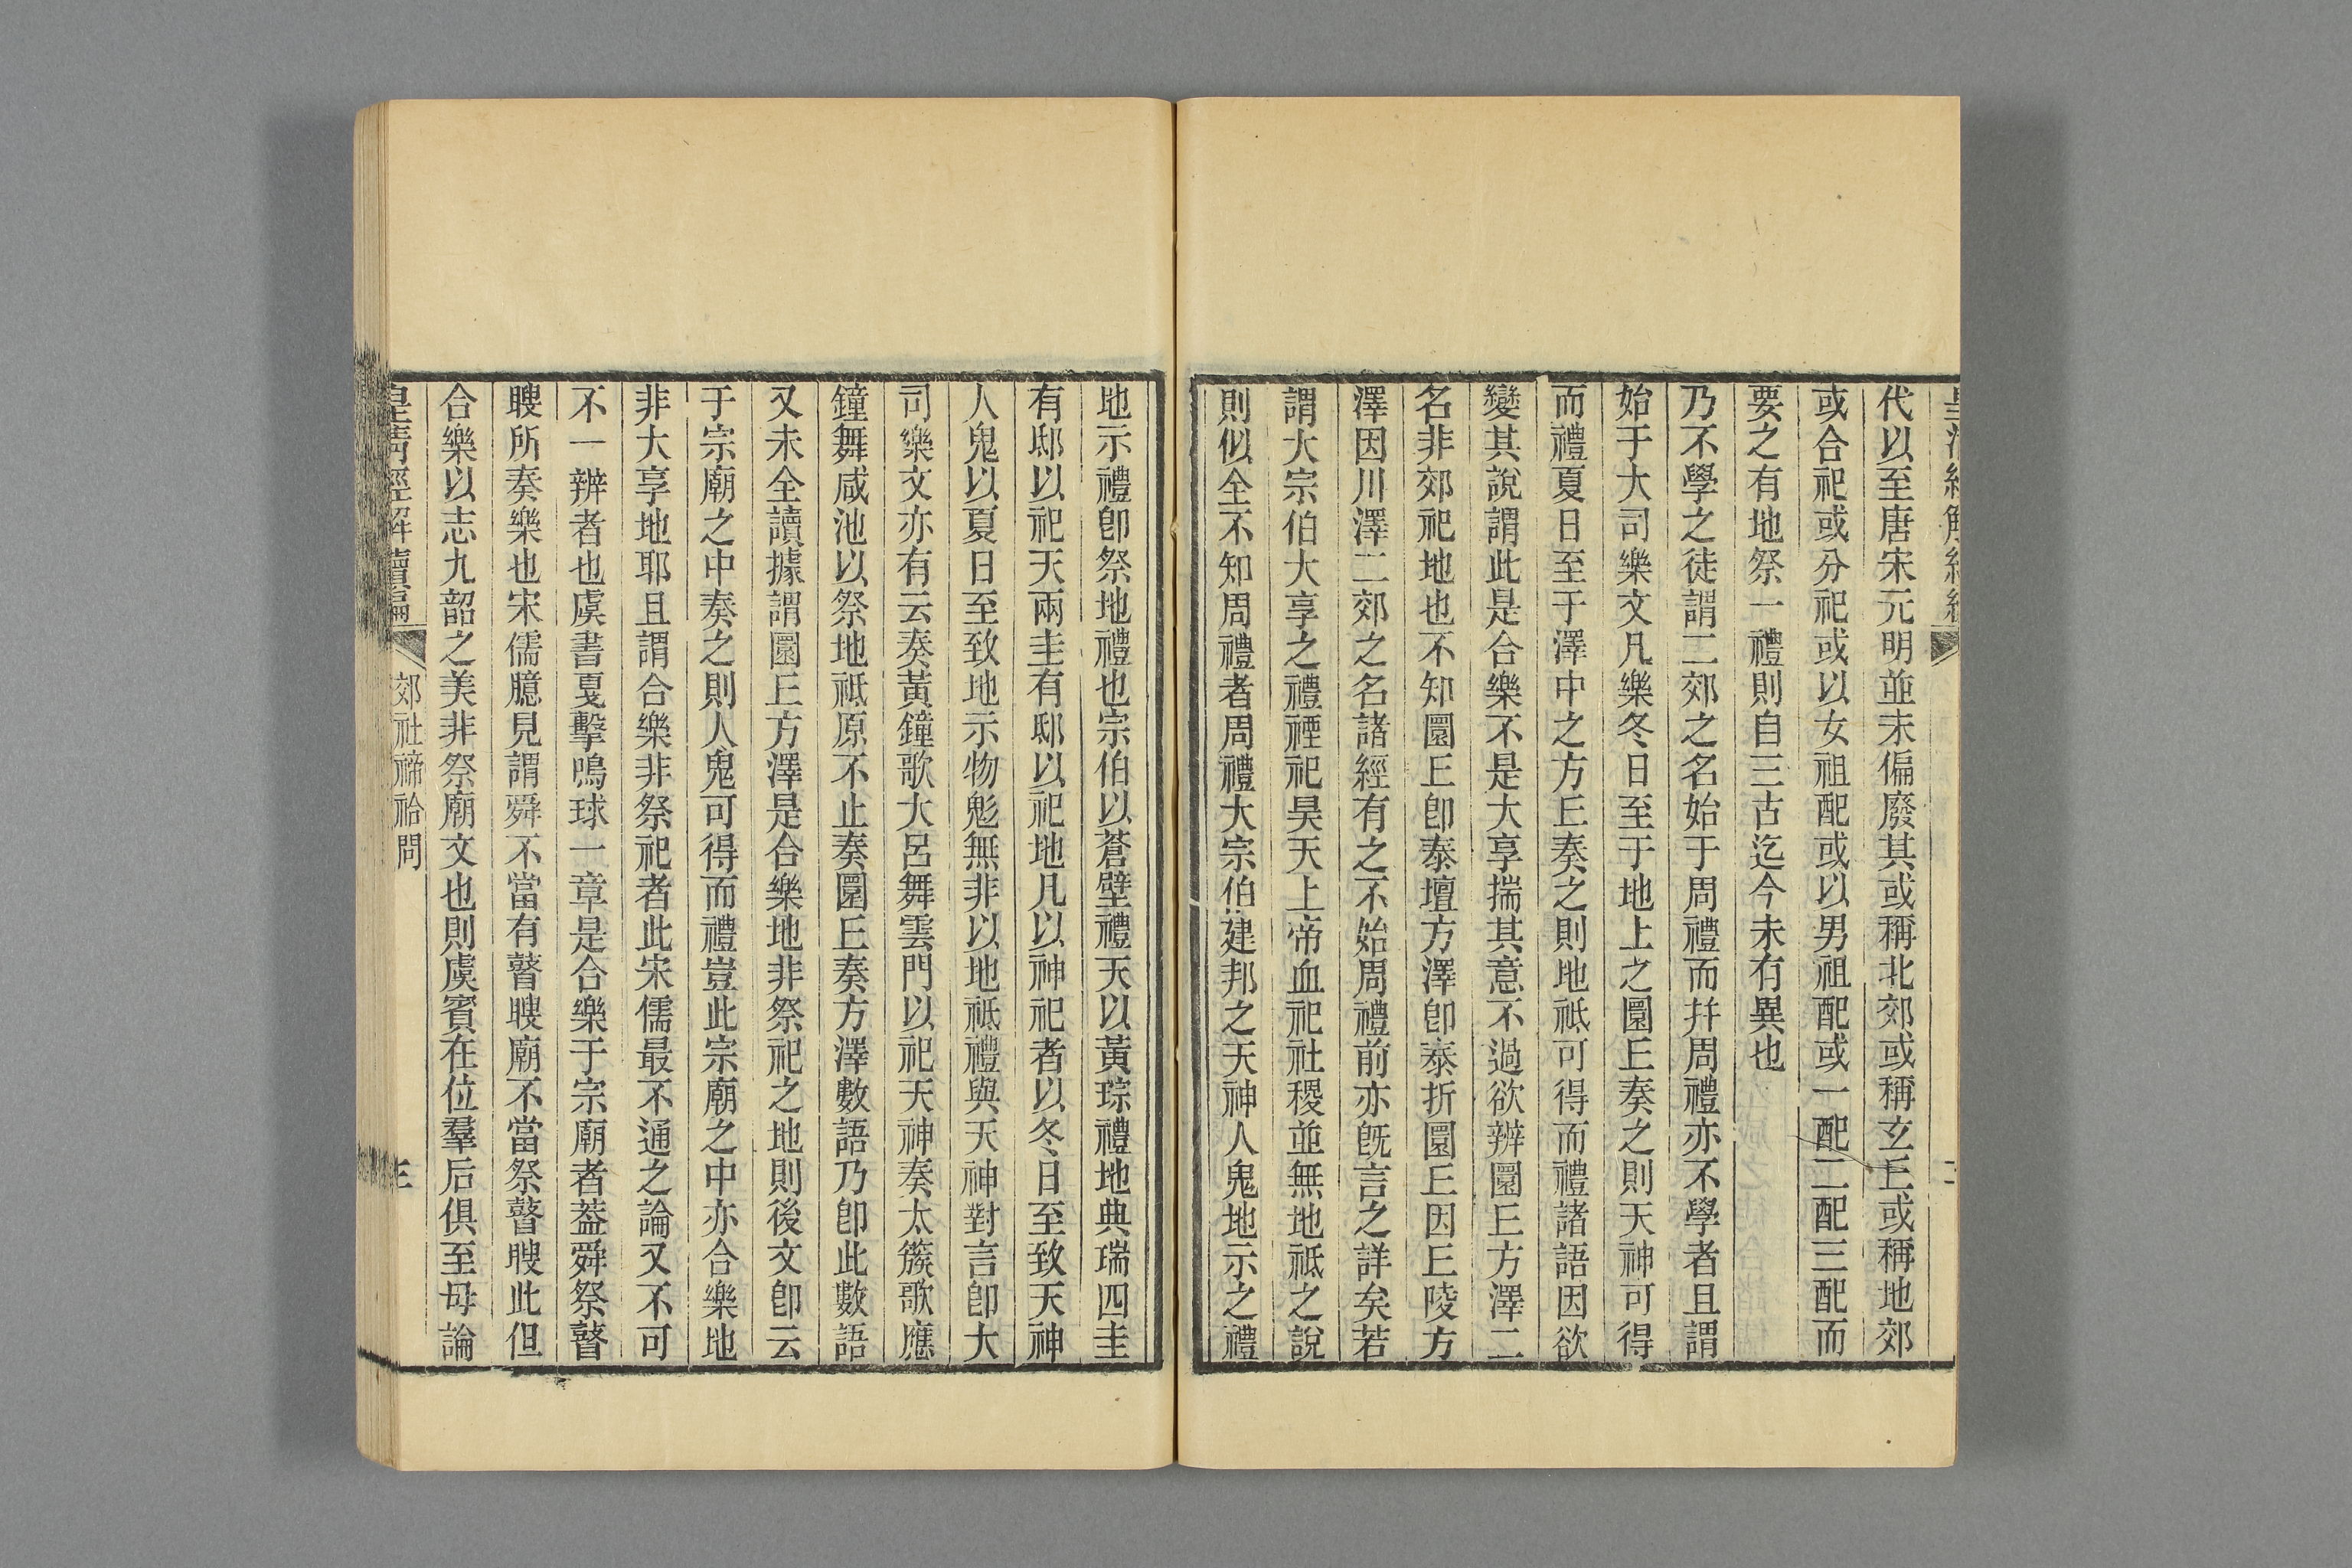 代以至唐宋元明並未偏廢其或稱北郊或稱玄𠀉或稱地郊
或合祀或分祀或以女祖配或以男祖配或一配二配三配而
要之有地祭一禮則自三古迄今未有異也
乃不學之徒謂二郊之名始于周禮而幷周禮亦不學者且謂
始于大司樂文凡樂冬日至于地上之圜𠀉奏之則天神可得
而禮夏日至于澤中之方𠀉奏之則地祗可得而禮諸語因欲
變其說謂此是合樂不是大享揣其意不過欲辨圜𠀉方澤二
名非郊祀地也不知圜𠀉卽泰壇方澤卽泰折圜𠀉因𠀉陵方
澤因川澤二郊之名諸經有之不始周禮前亦旣言之詳矣若
謂大宗伯大享之禮禋祀昊天上帝血祀社稷並無地祗之說
則似全不知周禮者周禮大宗伯建邦之天神人鬼地示之禮
地示禮卽祭地禮也宗伯以蒼壁禮天以黃琮禮地典瑞四圭
有邸以祀天兩圭有邸以祀地凡以神祀者以冬日至致天神
人鬼以夏日至致地示物鬽無非以地祗禮與天神對言卽大
司樂文亦有云奏黃鐘歌大呂舞雲門以祀天神奏太簇歌應
鐘舞咸池以祭地祗原不止奏圜𠀉奏方澤數語乃卽此數語
又未全讀據謂圜𠀉方澤是合樂地非祭祀之地則後文卽云
于宗廟之中奏之則人鬼可得而禮豈此宗廟之中亦合樂地
非大享地耶且謂合樂非祭祀者此宋儒最不通之論又不可
不一辨者也虞書戛擊鳴球一章是合樂于宗廟者葢舜祭瞽
瞍所奏樂也宋儒臆見謂舜不當有瞽瞍廟不當祭瞽瞍此但
合樂以志九韶之美非祭廟文也則虞賓在位羣后俱至毋論
皇清經解續編 郊社禘祫問 三